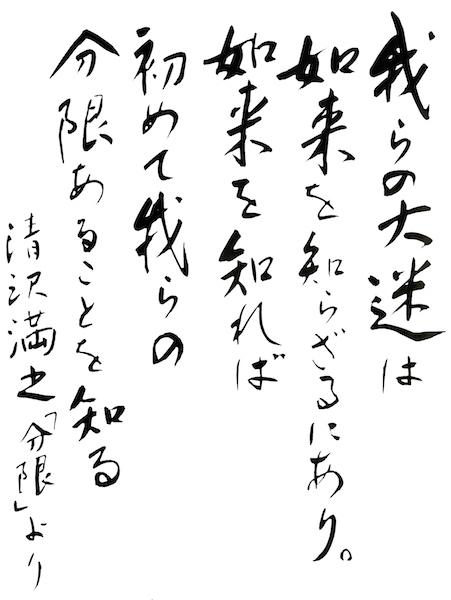 我らの大迷は
如来を知らざるにあり。
如来を知れば
初めて我らの
分限あることを知る
清沢満之「分限」より